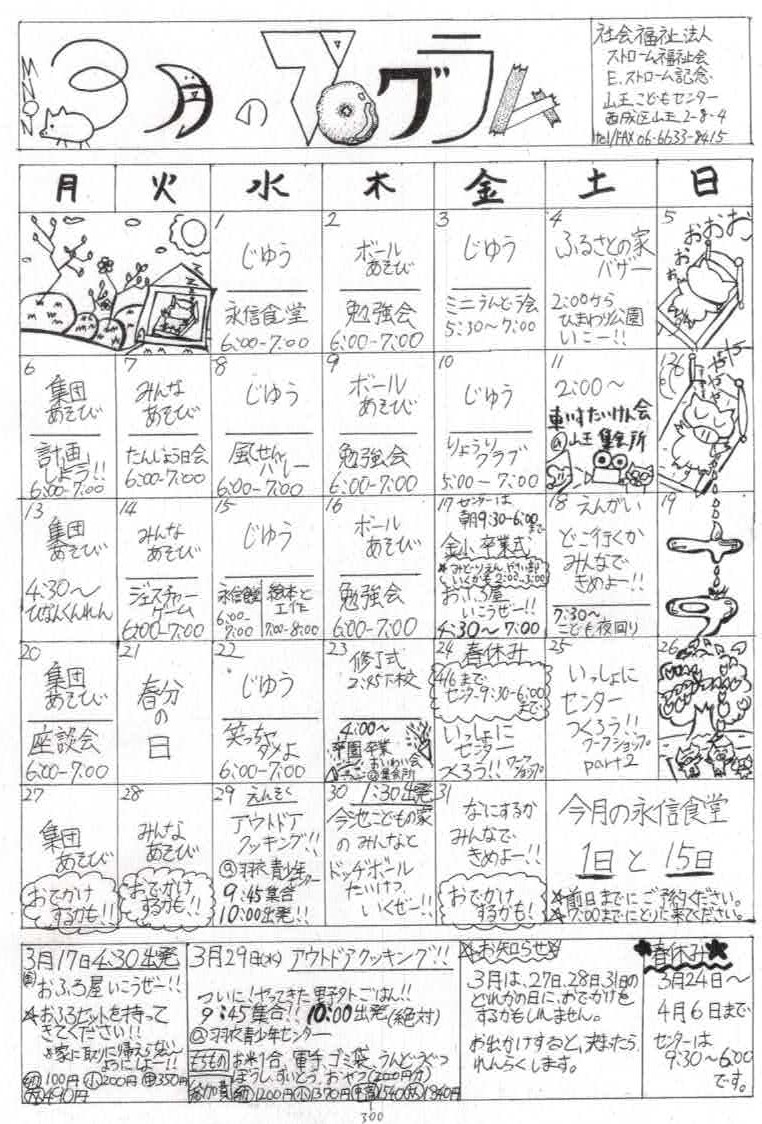 3月のプログラム
社会福祉法人
ストローム福祉会
E.ストローム記念
山王こどもセンター
西成区山王2-8-4
tel/FAX 06-6633-8415
月 火 水 木 金 土 日
1
じゆう
永信食堂
6:00-7:00
2
ボール
あそび
勉強会
6:00-7:00
3
じゆう
ミニうんどう会
5:30~7:00
4
ふるさとの家
バザー
2:00から
ひまわり公園
いこー!!
5
おおお
6
集団
あそび
計画
しよう!!
6:00-7:00
7
みんな
あそび
たんじょう日会
6:00-7:00
8
じゆう
風せん
バレー
6:00-7:00
9
ボール
あそび
勉強会
6:00-7:00
10
じゆう
りょうりクラブ
5:00-7:00
11
2:00~
車いすたいけん会
@山王集会所
13
集団
あそび
4:30~
ひなんくんれん
14
みんな
あそび
ジェスチャー
ゲーム
6:00-7:00
15
じゆう
永信食堂
6:00-
7:00
絵本と
工作
7:00-8:00
16
ボール
あそび
勉強会
6:00-7:00
17 センターは
朝9:30-6:00
まで
金小卒業式
おふろ屋
いこうぜー!!
4:30~7:00
18 えんがい
どこ行くか
みんなで
きめよー!!
7:30~
こども夜回り
19
20
集団
あそび
座談会
6:00-7:00
21
春分
の
日
22
じゆう
笑っちゃ
ダメよ
6:00-7:00
23
修了式
2:45下校
4:00~
卒園卒業
おいわい会
@集会所
24 春休み
4/6まで
センター9:30-6:00
まで
いっしょに
センター
つくろう!! ワークショップ
25
いっしょに
センター
つくろう!!
ワークショップ
part2
26
27
集団
あそび
おでかけ
するかも!!
28
みんな
あそび
おでかけ
するかも!!
29 えんそく
アウトドア
クッキング!!
@羽衣青少年
センター
9:45集合
10:00出発!!
30 1:30出発
今池こどもの家
のみんなと
ドッヂボール
たいけつ
いくぜー!!
31
なにするか
みんなで
きめよー!!
おでかけ
するかも!
今月の永信食堂
1日と15日
☆前日までにご予約ください。
☆7:00までにとりに来てください。
3月17日4:30出発
おふろ屋いこうぜー!!
☆おふろセットを持って
きてください!!
☆家に取りに帰えらない
ようにしよー!!
幼100円 小200円 中350円
大490円
3月29日(水) アウトドアクッキング!!
ついに!やってきた野外ごはん!!
9:45集合!! 10:00出発(絶対)
@羽衣青少年センター
もちもの お米1合、軍手、ゴミ袋、うんどうぐつ
ぼうし、すいとう、おやつ(200円分)
参加費 幼1200円 小1370円 中高1540円 大1840円
300
☆お知らせ☆
3月は、27日、28日、31日の
どれかの日に、おでかけを
するかもしれません。
お出かけすると、決まったら
れんらくします。
★春休み★
3月24日~
4月6日まで
センターは
9:30~6:00
です。